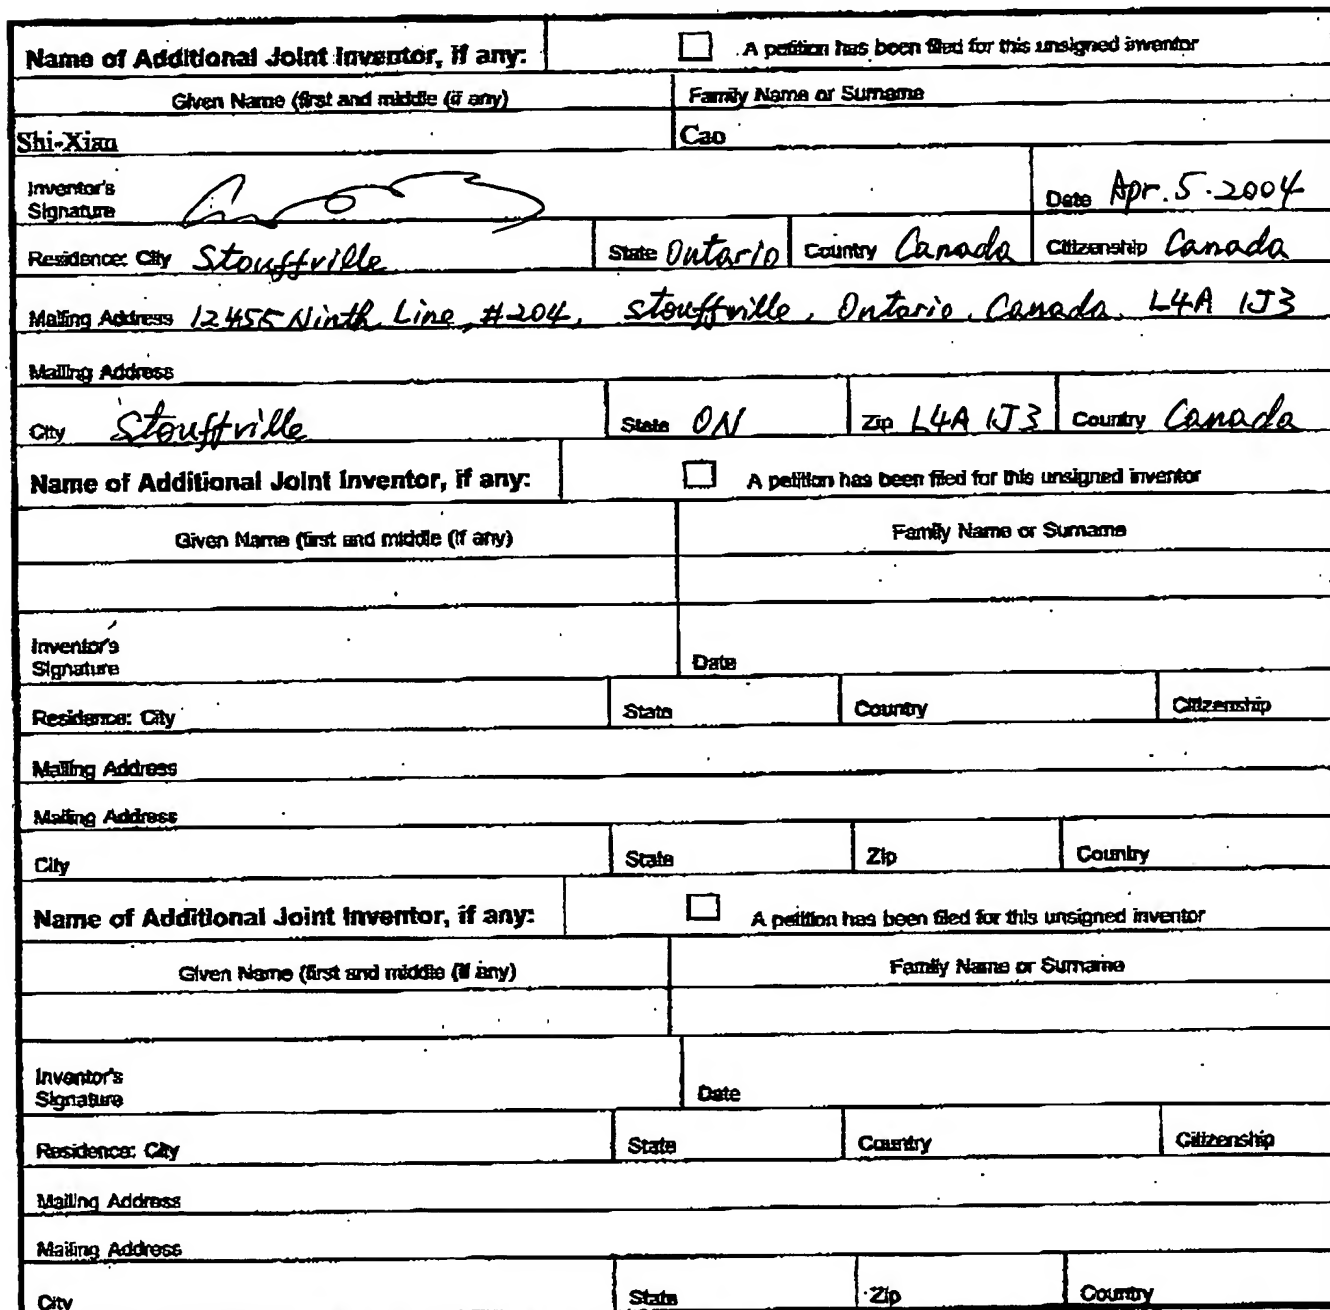 Name of Additional Joint Inventor, if any: A petition has been filed for this unsigned inventor
Given Name (first and middle (if any) Family Name or Surname
Shi-Xian Cao
Inventor's
Signature Date Apr. 5. 2004
Residence: City Stouffville State Ontario Country Canada Citizenship Canada
Mailing Address 12455 Ninth Line, #204, Stouffville, Ontario, Canada L4A 1J3
Mailing Address
City Stouffville State ON Zip L4A 1J3 Country Canada
Name of Additional Joint Inventor, if any: A petition has been filed for this unsigned inventor
Given Name (first and middle (if any) Family Name or Surname
Inventor's
Signature Date
Residence: City State Country Citizenship
Mailing Address
Mailing Address
City State Zip Country
Name of Additional Joint Inventor, if any: A petition has been filed for this unsigned inventor
Given Name (first and middle (if any) Family Name or Surname
Inventor's
Signature Date
Residence: City State Country Citizenship
Mailing Address
Mailing Address
City State Zip Country